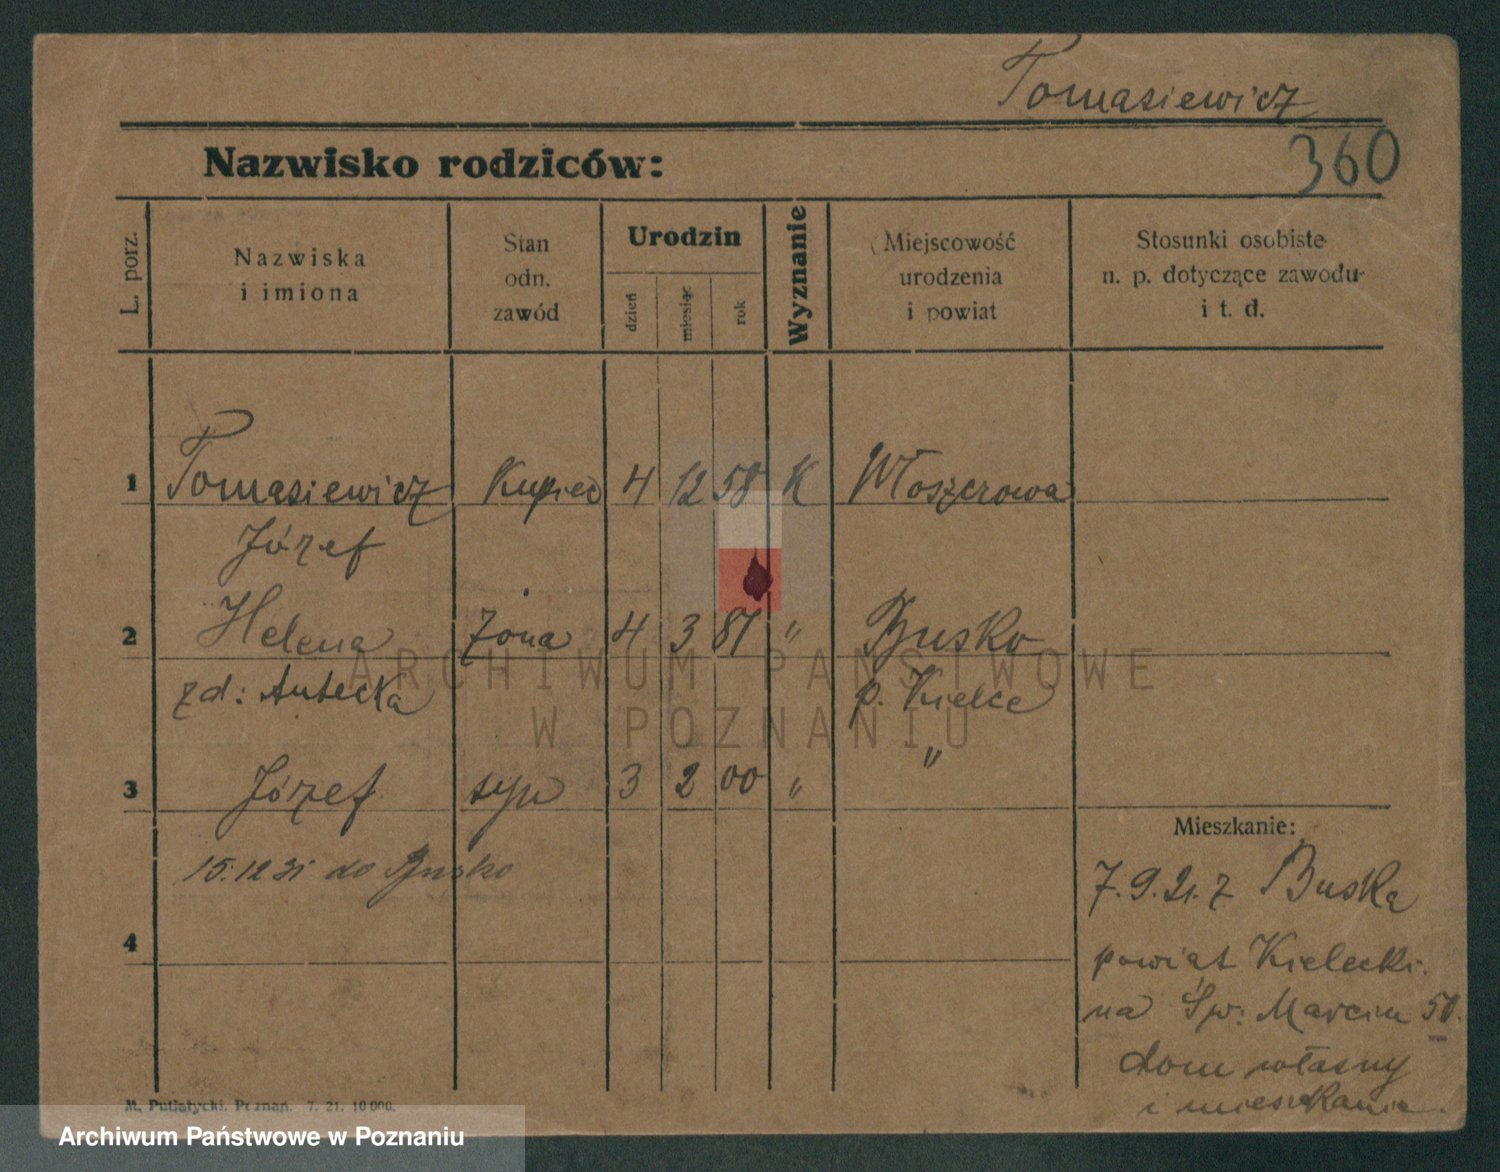 Tomasiewicz
360
Nazwisko rodziców:
L. porz.
Nazwiska
i imiona
Stan
odn.
zawód
Urodzin
dzień
miesiąc
rok
Wyznanie
Miejscowość
urodzenia
i powiat
Stosunki osobiste
n. p. dotyczące zawodu
i t. d.
1 Tomasiewicz Kupiec 4 12 58 K Włoszczowa
Józef
2 Helena żona 4 3 81 " Busko
zd: p. Kielce
"
3 Józef syn 3 2 00 "
Mieszkanie:
15.12 31 do Busko
7.9.21. z Buska
4
powiat Kielecki.
na Św: Marcin
dom własny
i mieszkanie.
M. Putiatycki, Poznań. 7. 21. 10 000.
ARCHIWUM PAŃSTWOWE
W POZNANIU
Archiwum Państwowe w Poznaniu